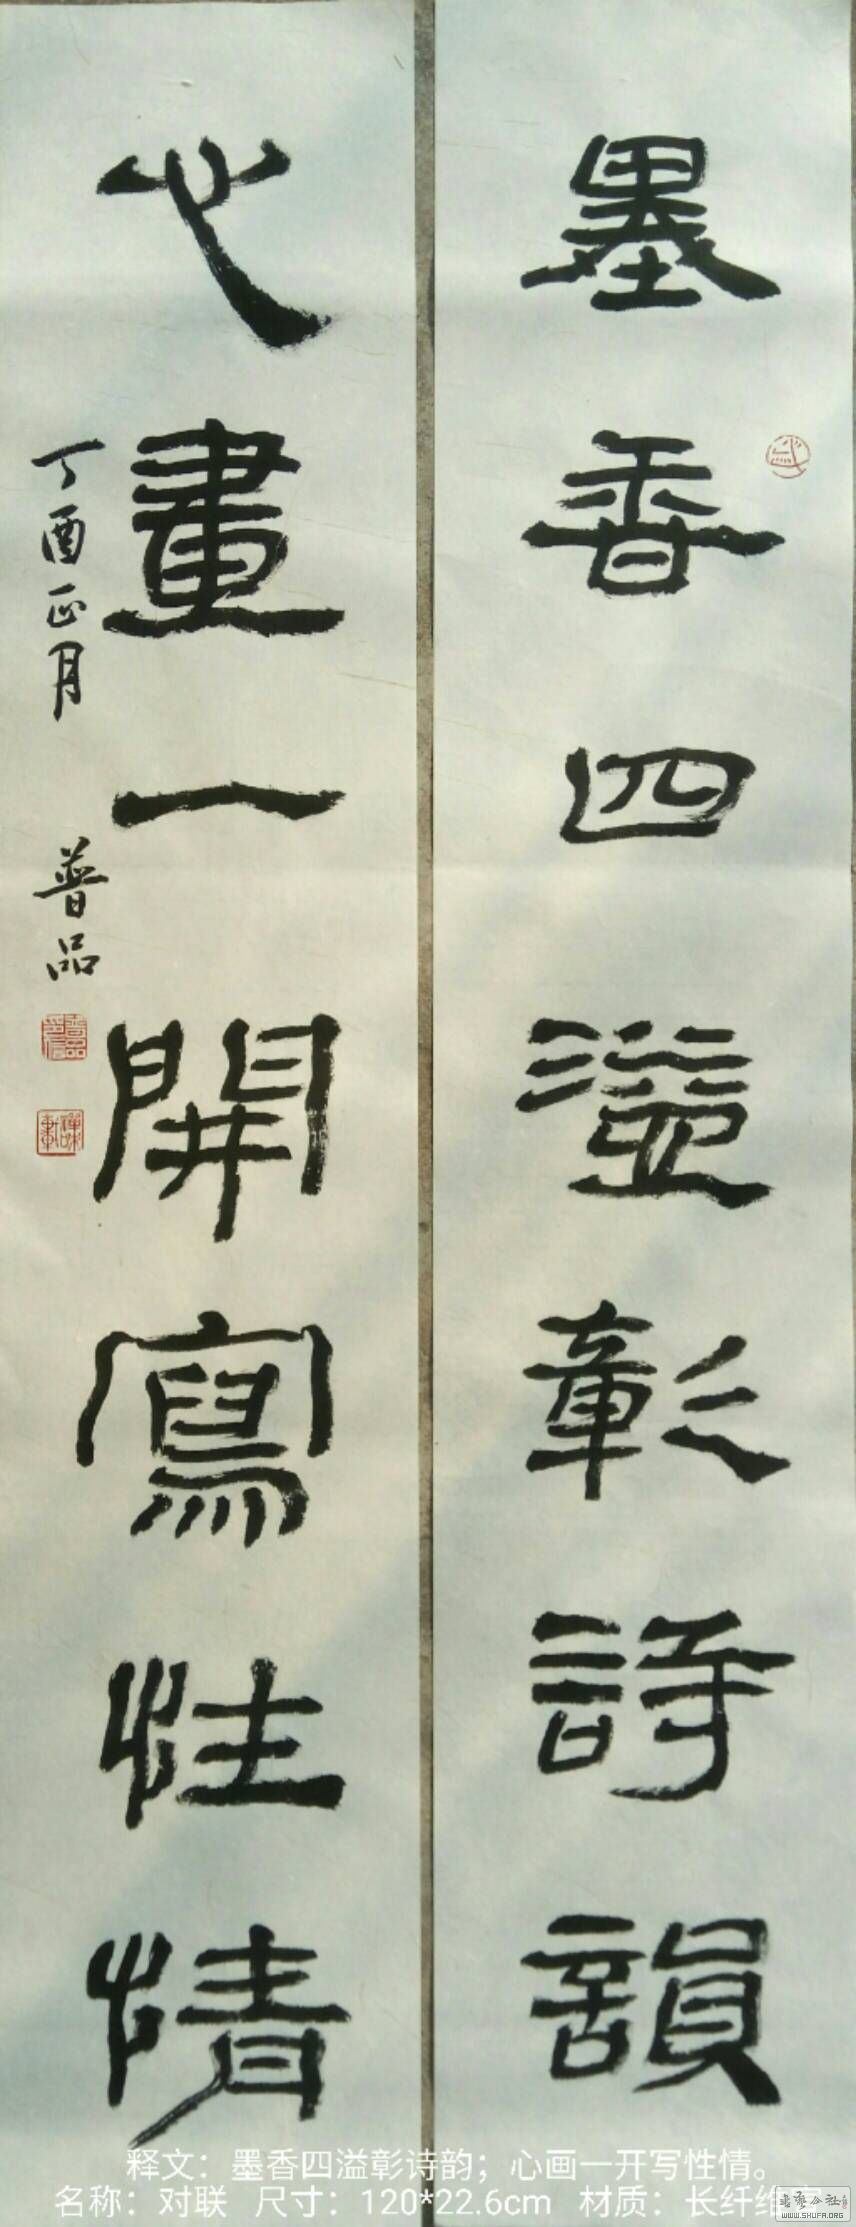 墨香四溢彰詩韻
心畫一開寫性情
丁酉正月
普品
释文：墨香四溢彰诗韵；心画一开写性情。
名称：对联 尺寸：120*22.6cm 材质：长纤维
书艺公社
WWW.SHUFA.ORG